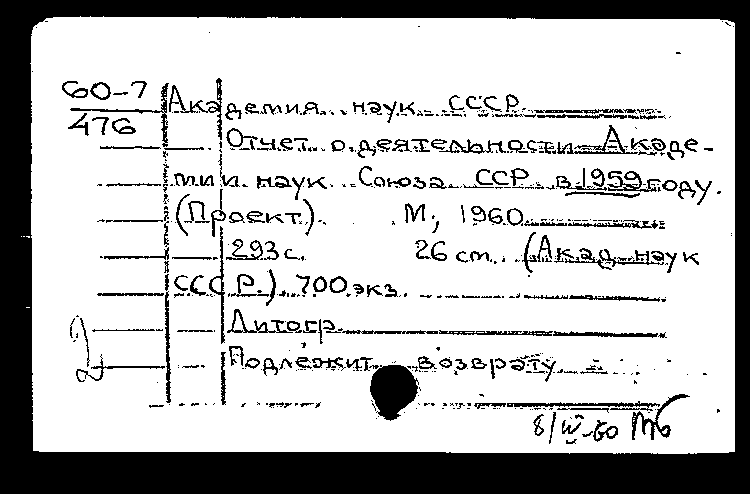 60-7
476
Академия наук СССР
Отчет о деятельности Акаде-
мии наук Союза ССР в 1959 году.
(Проект). М, 1960.
293 с. 26 см. (Акад. наук
СССР.). 700 экз.
Литогр.
Подлежит возврату
2